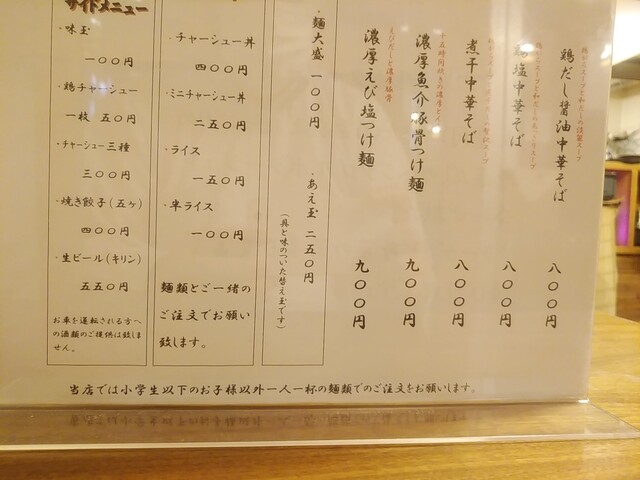 鶏だし醤油中華そば 八〇〇円
鶏塩中華そば 八〇〇円
煮干中華そば 八〇〇円
濃厚魚介豚骨つけ麺 九〇〇円
えびだしと濃厚豚骨
濃厚えび塩つけ麺 九〇〇円
・麺大盛 一〇〇円
・あえ玉 二五〇円
(具と味のついた替え玉です)
・チャーシュー丼
四〇〇円
・ミニチャーシュー丼
二五〇円
・ライス
一五〇円
・半ライス
一〇〇円
麺類とご一緒の
ご注文でお願い
致します。
サイドメニュー
・味玉
一〇〇円
・鶏チャーシュー
一枚 五〇円
・チャーシュー三種
三〇〇円
・焼き餃子(五ヶ)
四〇〇円
・生ビール(キリン)
五五〇円
お車を運転される方へ
の酒類のご提供は致しま
せん。
当店では小学生以下のお子様以外一人一杯の麺類でのご注文をお願いします。